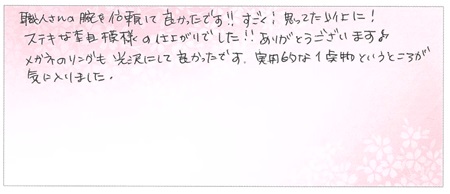 職人さんの腕を信頼して良かったです!!すごく!思ってた以上に!
ステキな杢目模様の仕上がりでした!!ありがとうございます♪
メガネのリングも光沢にして良かったです。実用的な1点物というところが
気に入りました。